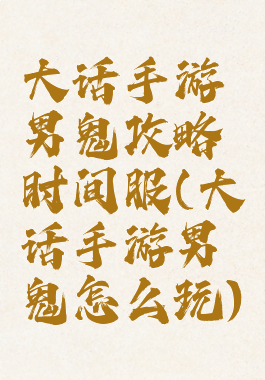 大话手游
男鬼攻略
时间服(大
话手游男
鬼怎么玩)